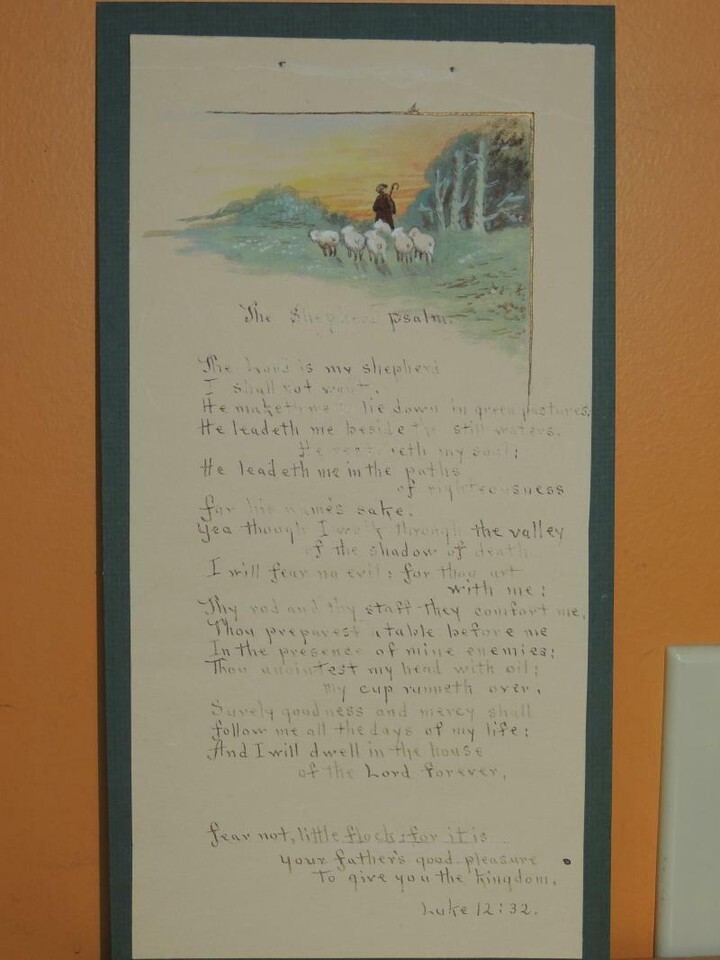 The Shepherd psalm.
The Lord is my shepherd
I shall not want.
He maketh me lie down in green pastures;
He leadeth me beside the still waters.
He restoreth my soul;
He leadeth me in the paths
of righteousness
for his name's sake.
Yea though I walk through the valley
of the shadow of death
I will fear no evil: for thou art
with me:
Thy rod and thy staff they comfort me,
Thou preparest a table before me
In the presence of mine enemies:
Thou anointest my head with oil;
my cup runneth over.
Surely goodness and mercy shall
follow me all the days of my life:
And I will dwell in the house
of the Lord forever,
Fear not, little flock: for it is
your father's good pleasure
to give you the kingdom.
Luke 12:32.